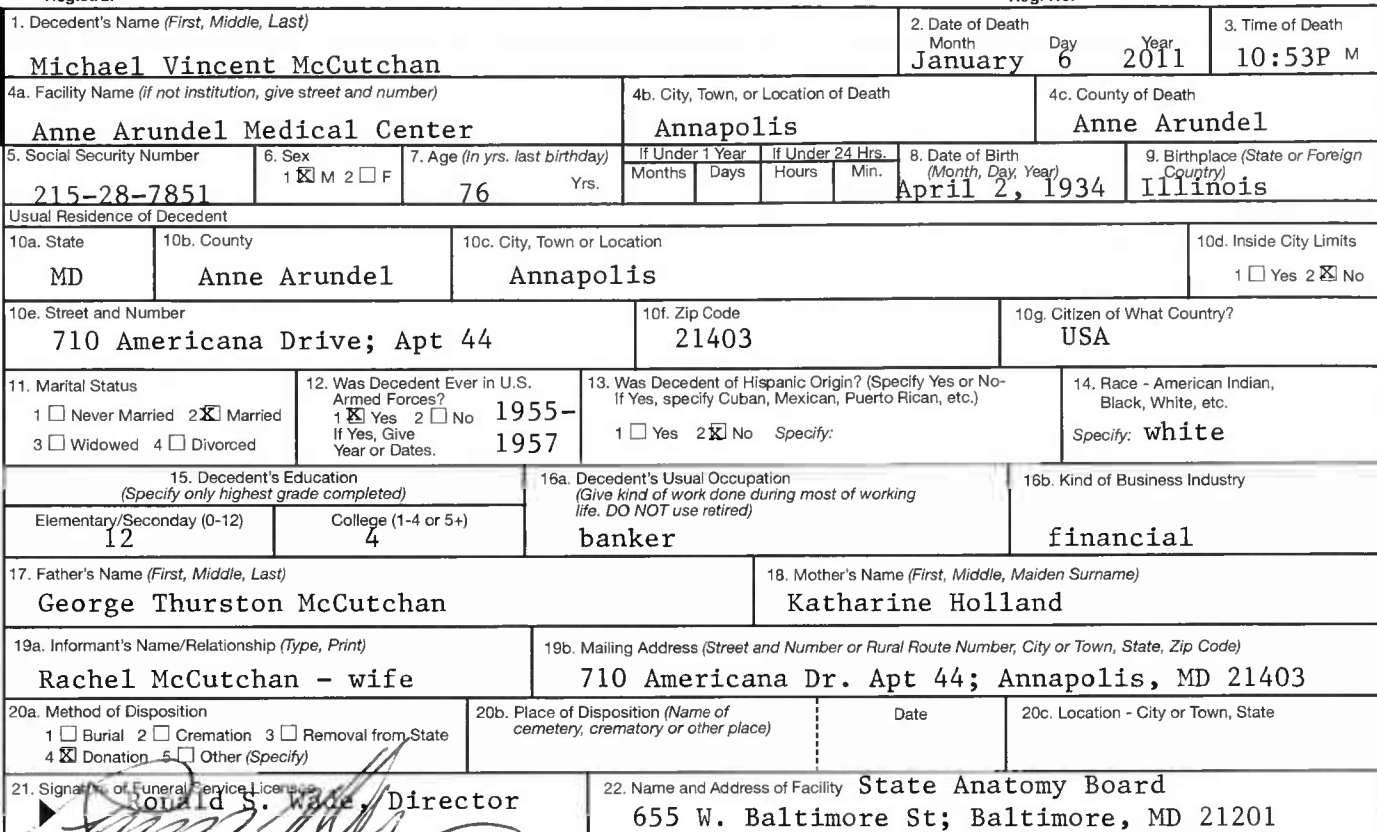 1. Decedent's Name (First, Middle, Last)
Michael Vincent McCutchan
2. Date of Death
Month Day Year
January 6 2011
3. Time of Death
10:53P M
4a. Facility Name (if not institution, give street and number)
Anne Arundel Medical Center
4b. City, Town, or Location of Death
Annapolis
4c. County of Death
Anne Arundel
5. Social Security Number
215-28-7851
6. Sex
1 ☒ M 2 ☐ F
7. Age (In yrs. last birthday)
76 Yrs.
If Under 1 Year
Months Days
If Under 24 Hrs.
Hours Min.
8. Date of Birth
(Month, Day, Year)
April 2, 1934
9. Birthplace (State or Foreign
Country)
Illinois
Usual Residence of Decedent
10a. State
MD
10b. County
Anne Arundel
10c. City, Town or Location
Annapolis
10d. Inside City Limits
1 ☐ Yes 2 ☒ No
10e. Street and Number
710 Americana Drive; Apt 44
10f. Zip Code
21403
10g. Citizen of What Country?
USA
11. Marital Status
1 ☐ Never Married 2 ☒ Married
3 ☐ Widowed 4 ☐ Divorced
12. Was Decedent Ever in U.S.
Armed Forces?
1 ☒ Yes 2 ☐ No 1955-
If Yes, Give
Year or Dates. 1957
13. Was Decedent of Hispanic Origin? (Specify Yes or No-
If Yes, specify Cuban, Mexican, Puerto Rican, etc.)
1 ☐ Yes 2 ☒ No Specify:
14. Race - American Indian,
Black, White, etc.
Specify: white
15. Decedent's Education
(Specify only highest grade completed)
Elementary/Seconday (0-12)
12
College (1-4 or 5+)
4
16a. Decedent's Usual Occupation
(Give kind of work done during most of working
life. DO NOT use retired)
banker
16b. Kind of Business Industry
financial
17. Father's Name (First, Middle, Last)
George Thurston McCutchan
18. Mother's Name (First, Middle, Maiden Surname)
Katharine Holland
19a. Informant's Name/Relationship (Type, Print)
Rachel McCutchan - wife
19b. Mailing Address (Street and Number or Rural Route Number, City or Town, State, Zip Code)
710 Americana Dr. Apt 44; Annapolis, MD 21403
20a. Method of Disposition
1 ☐ Burial 2 ☐ Cremation 3 ☐ Removal from State
4 ☒ Donation 5 ☐ Other (Specify)
20b. Place of Disposition (Name of
cemetery, crematory or other place)
Date
20c. Location - City or Town, State
21. Signature of Funeral Service Licensee
Ronald S. Wade, Director
22. Name and Address of Facility State Anatomy Board
655 W. Baltimore St; Baltimore, MD 21201